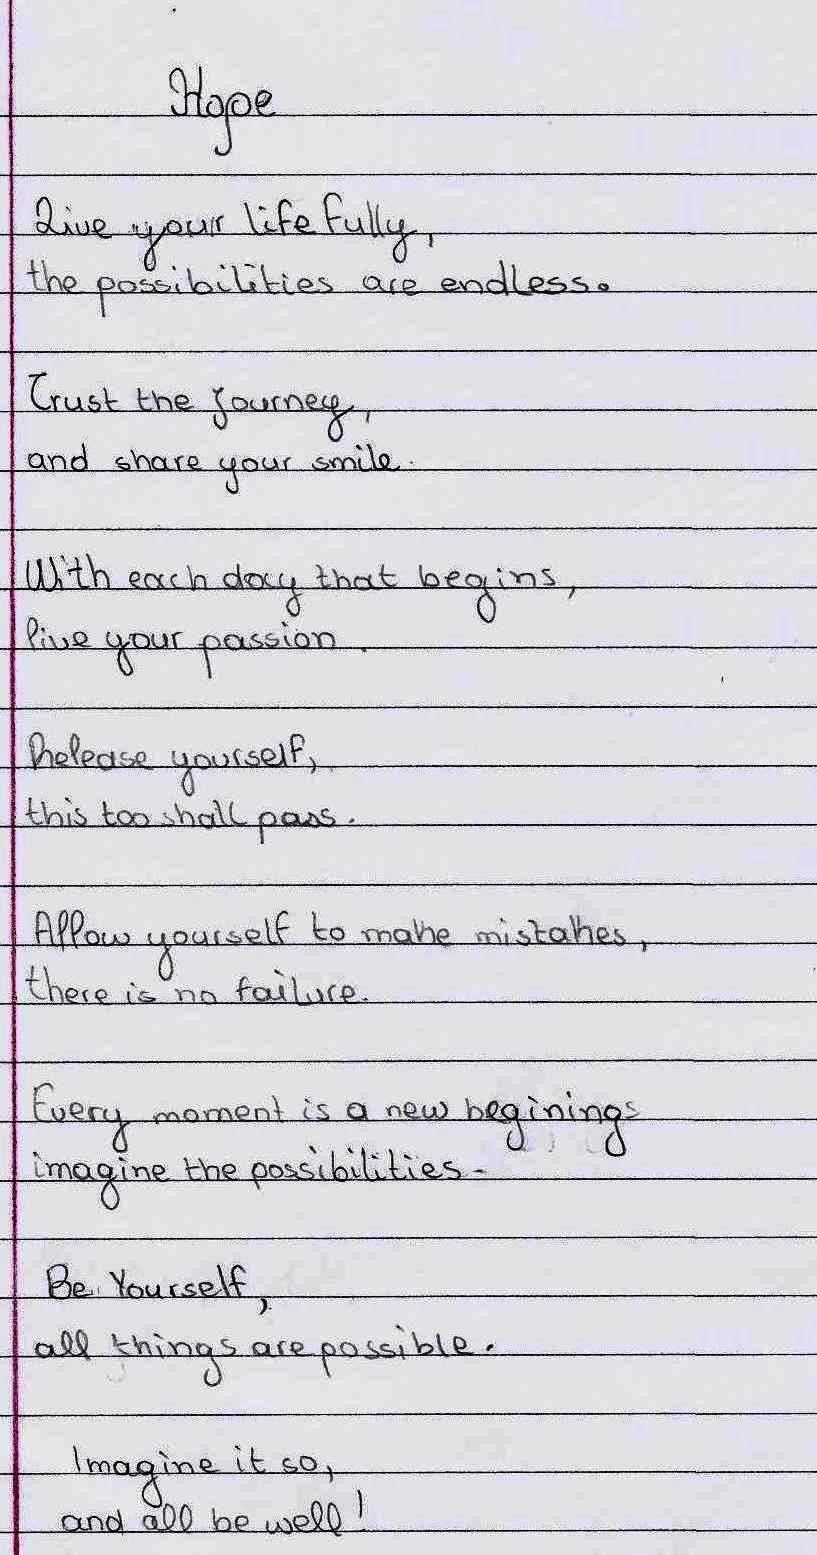 Hope
Live your life fully,
the possibilities are endless.
Trust the journey,
and share your smile.
With each day that begins,
live your passion.
Release yourself,
this too shall pass.
Allow yourself to make mistakes,
there is no failure.
Every moment is a new beginings
imagine the possibilities.
Be Yourself,
all things are possible.
Imagine it so,
and all be well!